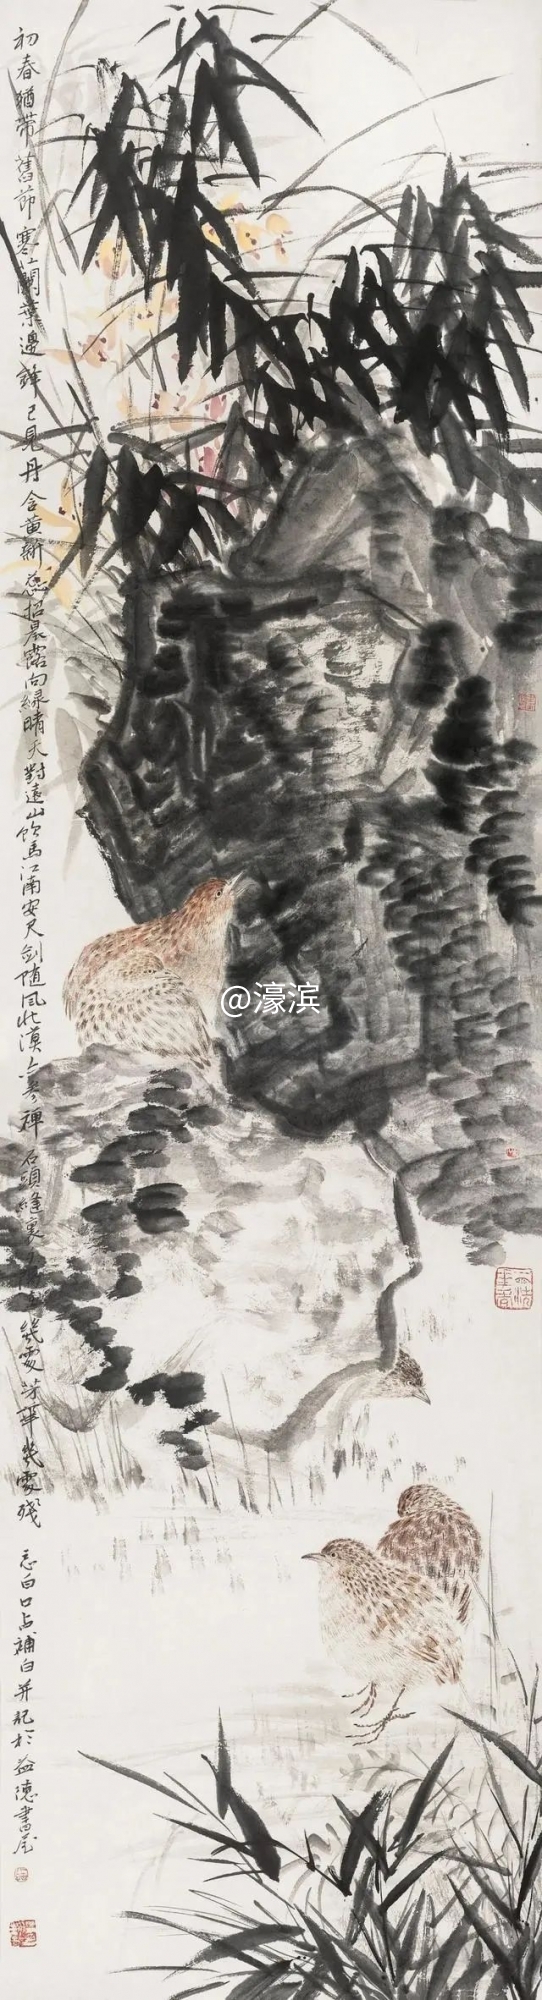 初春猶帶舊節寒蘭葉邊鋒已見丹含黃新蕊招晨露向綠晴天對遠山飲馬江南安尺劍随風北漠上參禪石頭縫裏 幾処芳華幾處殘
忘白口占補白并記於益德書屋
@濠滨